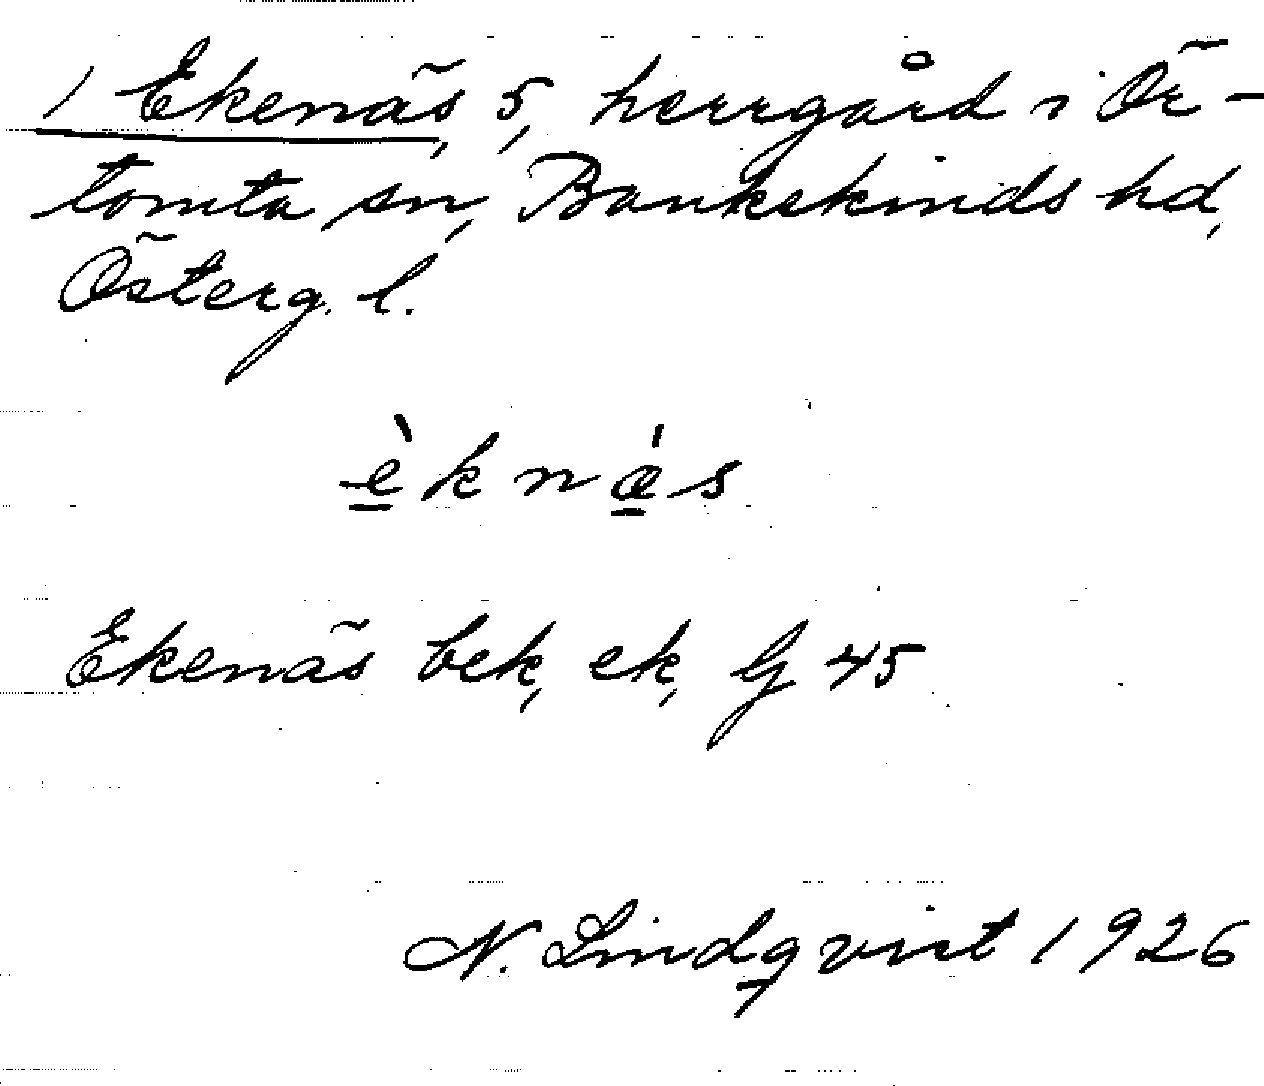 1 Ekenäs, 5, herrgård i Ör-
tomta sn, Bankekinds hd,
Österg. l.
è̱knǽ̱s
Ekenäs bek, ek, G 45
N. Lindqvist 1926